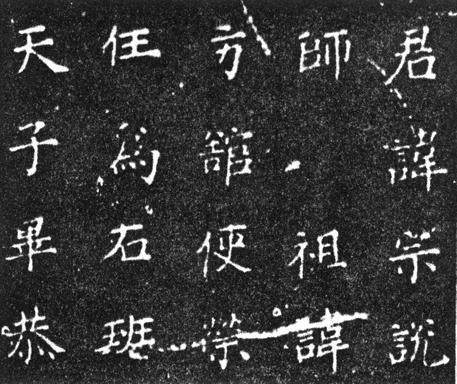 君諱崇說
師祖諱
方舘使榮
任爲右班
天子畢恭